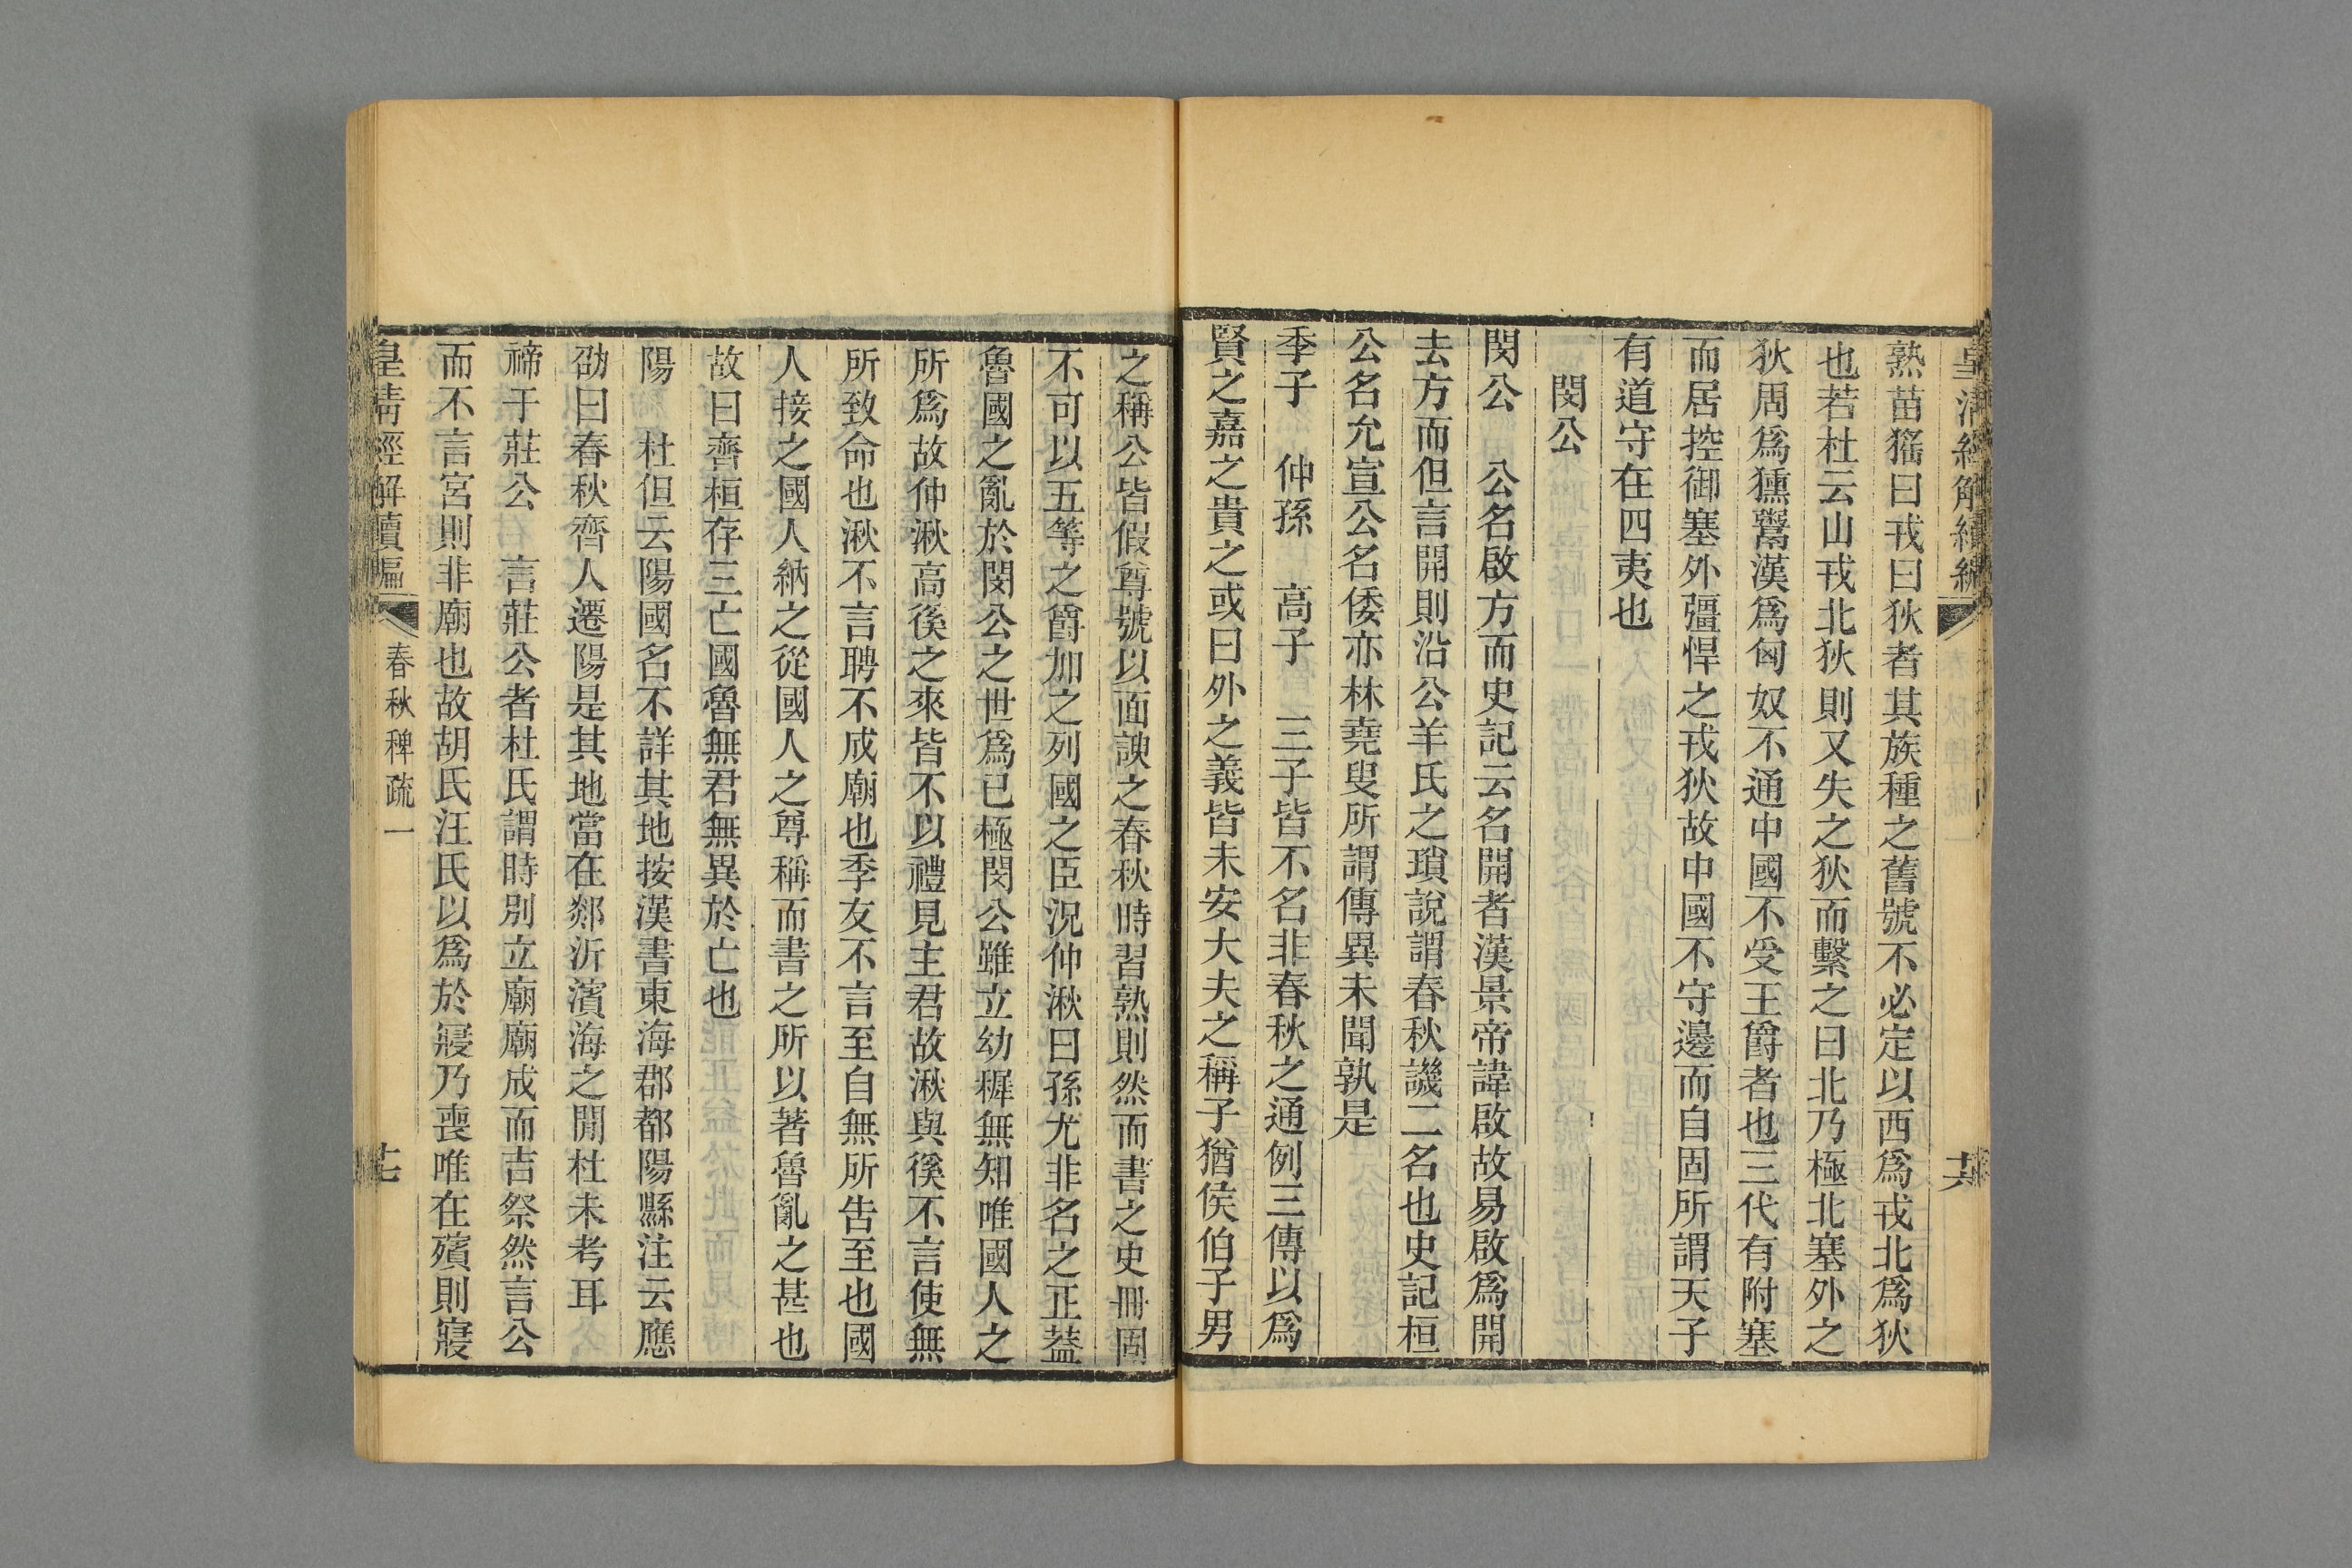 皇清經解續編
十六
熟苗猺曰戎曰狄者其族種之舊號不必定以西爲戎北爲狄
也若杜云山戎北狄則又失之狄而繫之曰北乃極北塞外之
狄周爲獯鬻漢爲匈奴不通中國不受王爵者也三代有附塞
而居控御塞外彊悍之戎狄故中國不守邊而自固所謂天子
有道守在四夷也
閔公
閔公　公名啟方而史記云名開者漢景帝諱啟故易啟爲開
去方而但言開則沿公羊氏之瑣說謂春秋譏二名也史記桓
公名允宣公名倭亦林堯叟所謂傳異未聞孰是
季子　仲孫　高子　三子皆不名非春秋之通例三傳以爲
賢之嘉之貴之或曰外之義皆未安大夫之稱子猶侯伯子男
之稱公皆假尊號以面諛之春秋時習熟則然而書之史冊固
不可以五等之爵加之列國之臣況仲湫曰孫尤非名之正蓋
魯國之亂於閔公之世爲已極閔公雖立幼穉無知唯國人之
所爲故仲湫高傒之來皆不以禮見主君故湫與傒不言使無
所致命也湫不言聘不成廟也季友不言至自無所告至也國
人接之國人納之從國人之尊稱而書之所以著魯亂之甚也
故曰齊桓存三亡國魯無君無異於亡也
陽　杜但云陽國名不詳其地按漢書東海郡都陽縣注云應
劭曰春秋齊人遷陽是其地當在郯沂濱海之閒杜未考耳
禘于莊公　言莊公者杜氏謂時別立廟廟成而吉祭然言公
而不言宮則非廟也故胡氏汪氏以爲於寢乃喪唯在殯則寢
皇清經解續編
春秋稗疏一
十七